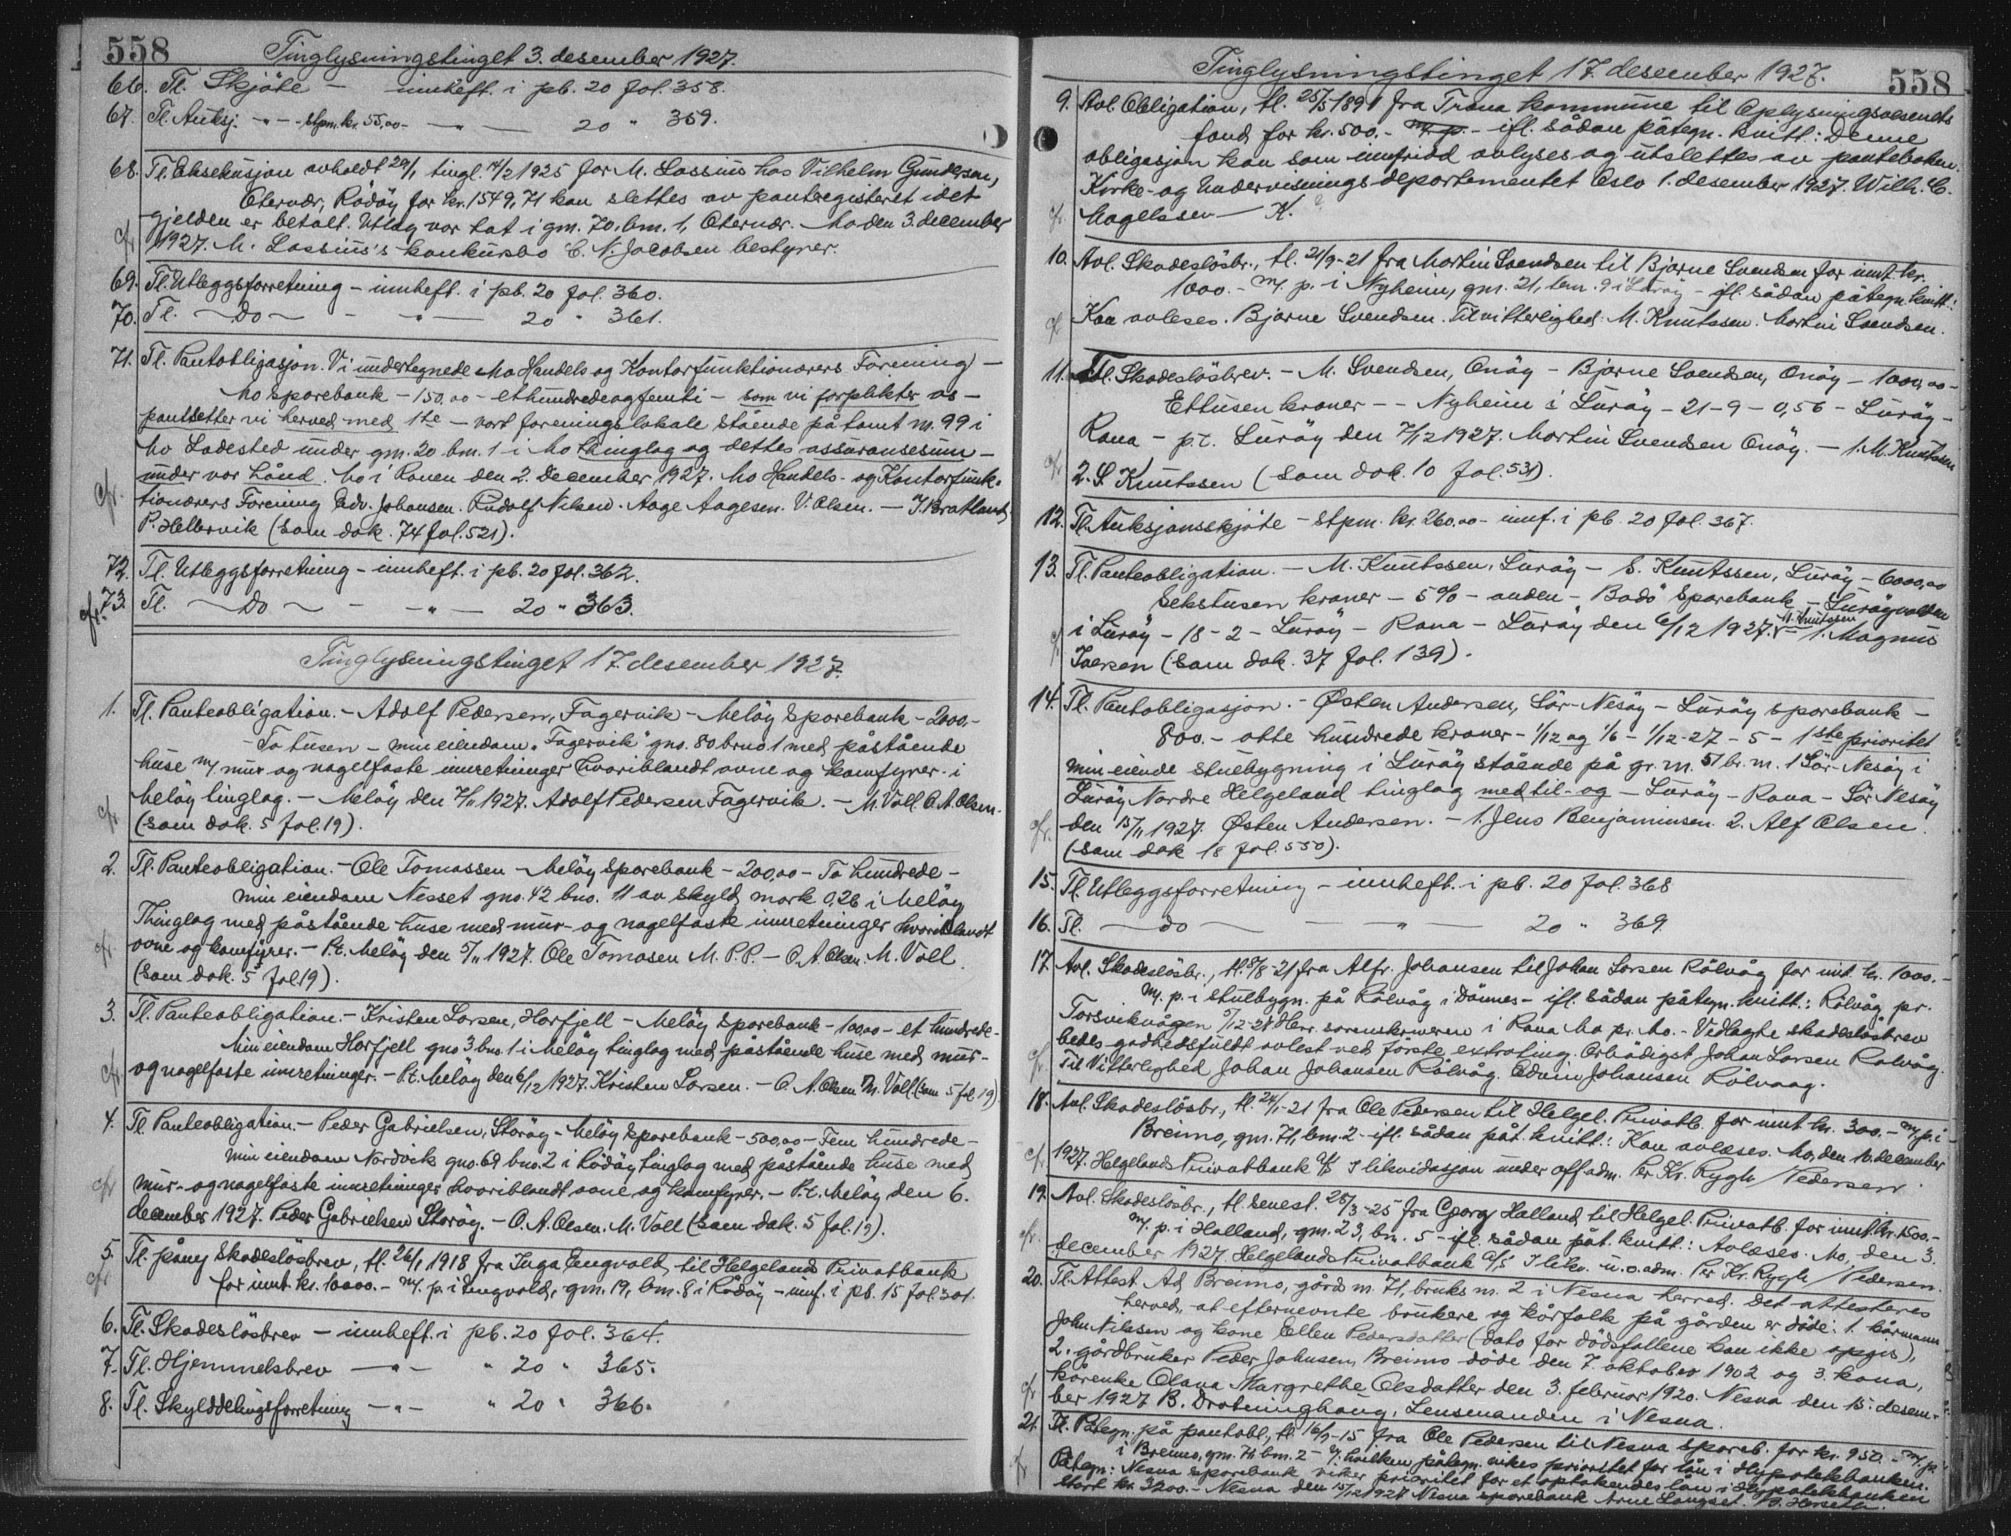 558 Tinglysningstinget 3. desember 1927.
66. Tl. Skjöte — innheft. i pb. 20 fol. 358.
67. Tl. Auksj. -"- stpm. kr. 55,00- -"- — 20 " 359.
68. Tl. Eksekusjon avholdt 29/1 tingl. 14/2 1925 for M. Lossius hos Vilhelm Gundersen,
Oternær, Rödöy for kr. 1549,71 kan slettes av panteregisteret idet
gjelden er betalt. Utlag var tat i gm. 70, bm. 1, Oternær. Mo den 3. december
cfr 1927. M. Lossius's konkursbo C. N. Jacobsen bestyrer.
69. Tl. Utleggsforretning - innheft. i pb. 20 fol. 360.
70. Tl. — Do — - -"- — 20 " 361.
71. Tl. Pantobligasjon. Vi undertegnede Mo Handels og Kontorfunktionærers Forening —
Mo sparebank - 150,00 - ethundredeogfemti - som vi forplikter os -
pantsetter vi herved med 1ste - vort foreningslokale stående på tomt nr. 99 i
Mo Ladested under gm. 20 bm. 1 i Mo thinglag og dettes assuransesum -
under vor hånd. Mo i Ranen den 2. December 1927. Mo Handels- og Kontorfunk-
cfr. tionærers Forening Edv. Johansen. Rudolf Nilsen. Aage Aagesen. V. Olsen. — J. Bratland,
P. Hellervik (Som dok. 74 fol. 521).
72. Tl. Utleggsforretning - innheft. i pb. 20 fol. 362.
cfr. 73. Tl. — Do — - -"- — 20 " 363.
Tinglysningstinget 17. desember 1927.
1. Tl. Panteobligation. - Adolf Pedersen, Fagervik - Meløy Sparebank - 2000,-
- To tusen - min eiendom "Fagervik" gno. 80 brno 1 med påstående
huse m/ mur og nagelfaste innretninger hvoriblandt ovne og komfyrer i
Meløy tinglag. - Meløy den 7/11 1927. Adolf Pedersen Fagervik. - M. Voll O. A. Olsen.
cfr (som dok. 5 fol. 19).
2. Tl. Panteobligation. - Ole Tomassen - Meløy Sparebank - 200,00 - To hundrede -
min eiendom Nesset gno. 42 bno. 11 av skyld mark 0,26 i Meløy
Thinglag med påstående huse med mur- og nagelfaste innretninger hvoriblandt
cfr ovne og komfyrer. - Pt. Meløy den 5/11 1927. Ole Tomasen M. P. P. - O. A. Olsen. M. Voll.
(Som dok. 5 fol. 19).
3. Tl. Panteobligation. - Kristen Larsen, Horfjell - Meløy Sparebank - 100,00 - et hundrede -
Min eiendom Horfjell gno 3. bno. 1 i Meløy tinglag med påstående huse med mur-
cfr og nagelfaste innretninger. - Pt. Meløy den 6/12 1927. Kristen Larsen. - O. A. Olsen M. Voll. (som 5 fol. 19)
4. Tl. Panteobligation. - Peder Gabrielsen, Storøy - Meløy Sparebank - 500,00 - Fem hundrede -
min eiendom Nordvik gno. 69 bno. 2 i Rödöy tinglag med påstående huse med
cfr mur- og nagelfaste innretninger hvoriblandt ovne og komfyrer. - Pt. Meløy den 6.
december 1927. Peder Gabrielsen Storøy. - O. A. Olsen. M. Voll (Som dok. 5 fol. 19).
5. Tl. påny Skadeslösbrev, tl. 26/1 1918 fra Inga Engvold til Helgelands Privatbank
cfr for innt. kr. 10000.- m/ p. i Engvold, gm. 19, bm. 8 i Rödöy - innf. i pb. 15 fol. 301.
6. Tl. Skadeslösbrev - innheft. i pb. 20 fol. 364.
7. Tl. Hjemmelsbrev -"- " 20 " 365.
8. Tl. Skylddelingsforretning -"- " 20 " 366.
Tinglysningstinget 17. desember 1927. 558
9. Avl. Obligation, tl. 25/5 1891 fra Træna kommune til Oplysningsvæsenets
fond for kr. 500.- m/ p. - ifl. sådan påtegn. kvitt.: Denne
obligasjon kan som innfridd avlyses og utslettes av panteboken.
Kirke- og Undervisningsdepartementet Oslo 1. desember 1927. Wilh. C.
cfr Magelssen — K.
10. Avl. Skadeslösbr., tl. 21/9-21 fra Martin Svendsen til Bjarne Svendsen for innt. kr.
1000.- m/ p. i Nyheim, gm. 21, bm. 9 i Luröy - ifl. sådan påtegn. kvitt.:
cfr Kan avleses. Bjarne Svendsen. Til vitterlighed: M. Knutssen. Martin Svendsen.
11. Tl. Skadeslösbrev. - M. Svendsen, Onöy - Bjarne Svendsen, Onöy - 1000,00 -
Ettusen kroner - - Nyheim i Luröy - 21 - 9 - 0,56 - Luröy -
Rana - p.t. Luröy den 7/12 1927. Martin Svendsen Onöy. - 1. M. Knutssen
cfr 2. S. Knutssen (Som dok. 10 fol. 531).
12. Tl. Auksjonsskjöte - stpm. kr. 260,00 - innf. i pb. 20 fol. 367.
13. Tl. Panteobligation. - M. Knutssen, Luröy - S. Knutssen, Luröy - 6000,00
Sekstusen kroner - 5% - anden - Bodö Sparebank - Luröyvalen
i Luröy - 18 - 2 - Luröy - Rana - Luröy den 6/12 1927. M. Knutssen - 1. Magnus
cfr Iversen (Som dok. 37 fol. 139).
14. Tl. Pantobligasjon. - Østen Andersen, Sör-Nesöy - Luröy sparebank -
800.- otte hundrede kroner - 1/12 og 1/6 - 1/12-27 - 5 - 1ste prioritet
min eiende stuebygning i Luröy stående på gr. nr. 51 br. nr. 1 Sör-Nesöy i
Luröy Nordre Helgeland tinglag med til- og - Luröy - Rana - Sör Nesöy
cfr. den 15/11 1927. Østen Andersen. - 1. Jens Benjaminsen. 2. Alf Olsen.
(Som dok 18 fol. 550).
15. Tl. Utleggsforretning - innheft. i pb. 20 fol. 368
16. Tl. — do — — " — 20 " 369.
17. Avl. Skadeslösbr., tl. 5/8-21 fra Alfr. Johansen til Johan Larsen Rölvåg for innt. kr. 1000.-
m/ p. i stuebygn. på Rölvåg i Dönnes - ifl. sådan påtegn. kvitt.: Rölvåg pr.
Torsvikvågen 5/12-27 Herr. sorenskriveren i Rana Mo pr. Mo. - Vedlagte skadeslösbrev
bedes godhedsfuldt avlest ved förste extrating. Ærbödigst Johan Larsen Rølvåg.
cfr Til Vitterlighed Johan Johansen Rölvåg. Edvin Johansen Rölvaag.
18. Avl. Skadeslösbr., tl. 24/1-21 fra Ole Pedersen til Helgel. Privatb. for innt. kr. 300.- m/ p. i
Breimo, gm. 71, bm. 2 - ifl. sådan påt. kvitt.: Kan avlæses. Mo, den 10. december
cfr 1927. Helgelands Privatbank A/S I likvidasjon under off. adm. Per Kr. Rygh / Pedersen.
19. Avl. Skadeslösbr., tl. senest. 28/3-25 fra Georg Halland til Helgel. Privatb. for innt. kr. 1500.-
cfr. m/ p. i Halland, gm. 23, bm. 5 - ifl. sådan påt. kvitt.: Avlæses. Mo, den 3.
december 1927. Helgelands Privatbank A/S I likv. u. o. adm. Per Kr. Rygh / Pedersen.
20. Tl. Attest. Ad Breimo, gårds nr. 71, bruks nr. 2 i Nesna herred. Det attesteres
herved at efternevnte brukere og kårfolk på gården er döde: 1. kårmann
John Nilssen og kone Ellen Pedersdatter (dato for dödsfallene kan ikke opgis),
2. gårdbruker Peder Johnsen Breimo döde den 7. oktober 1902 og 3. kona,
kårenke Olava Margrethe Olsdatter den 3. februar 1920. Nesna den 15. desem-
cfr ber 1927 B. Drotninghaug, Lensmanden i Nesna.
21. Tl. Påtegn. på pantobl., tl. 16/7-15 fra Ole Pedersen til Nesna Spareb. for kr. 950.- m/ p.
i Breimo, gm. 71 bm. 2 - v/ hvilken påtegn. vikes prioritet for lån i Hypotekbanken.
cfr Påtegn.: Nesna sparebank viker prioritet for et optakendes lån i Hypotekbanken
stort kr. 3200.- Nesna den 15/12 1927 Nesna sparebank Arne Langset.